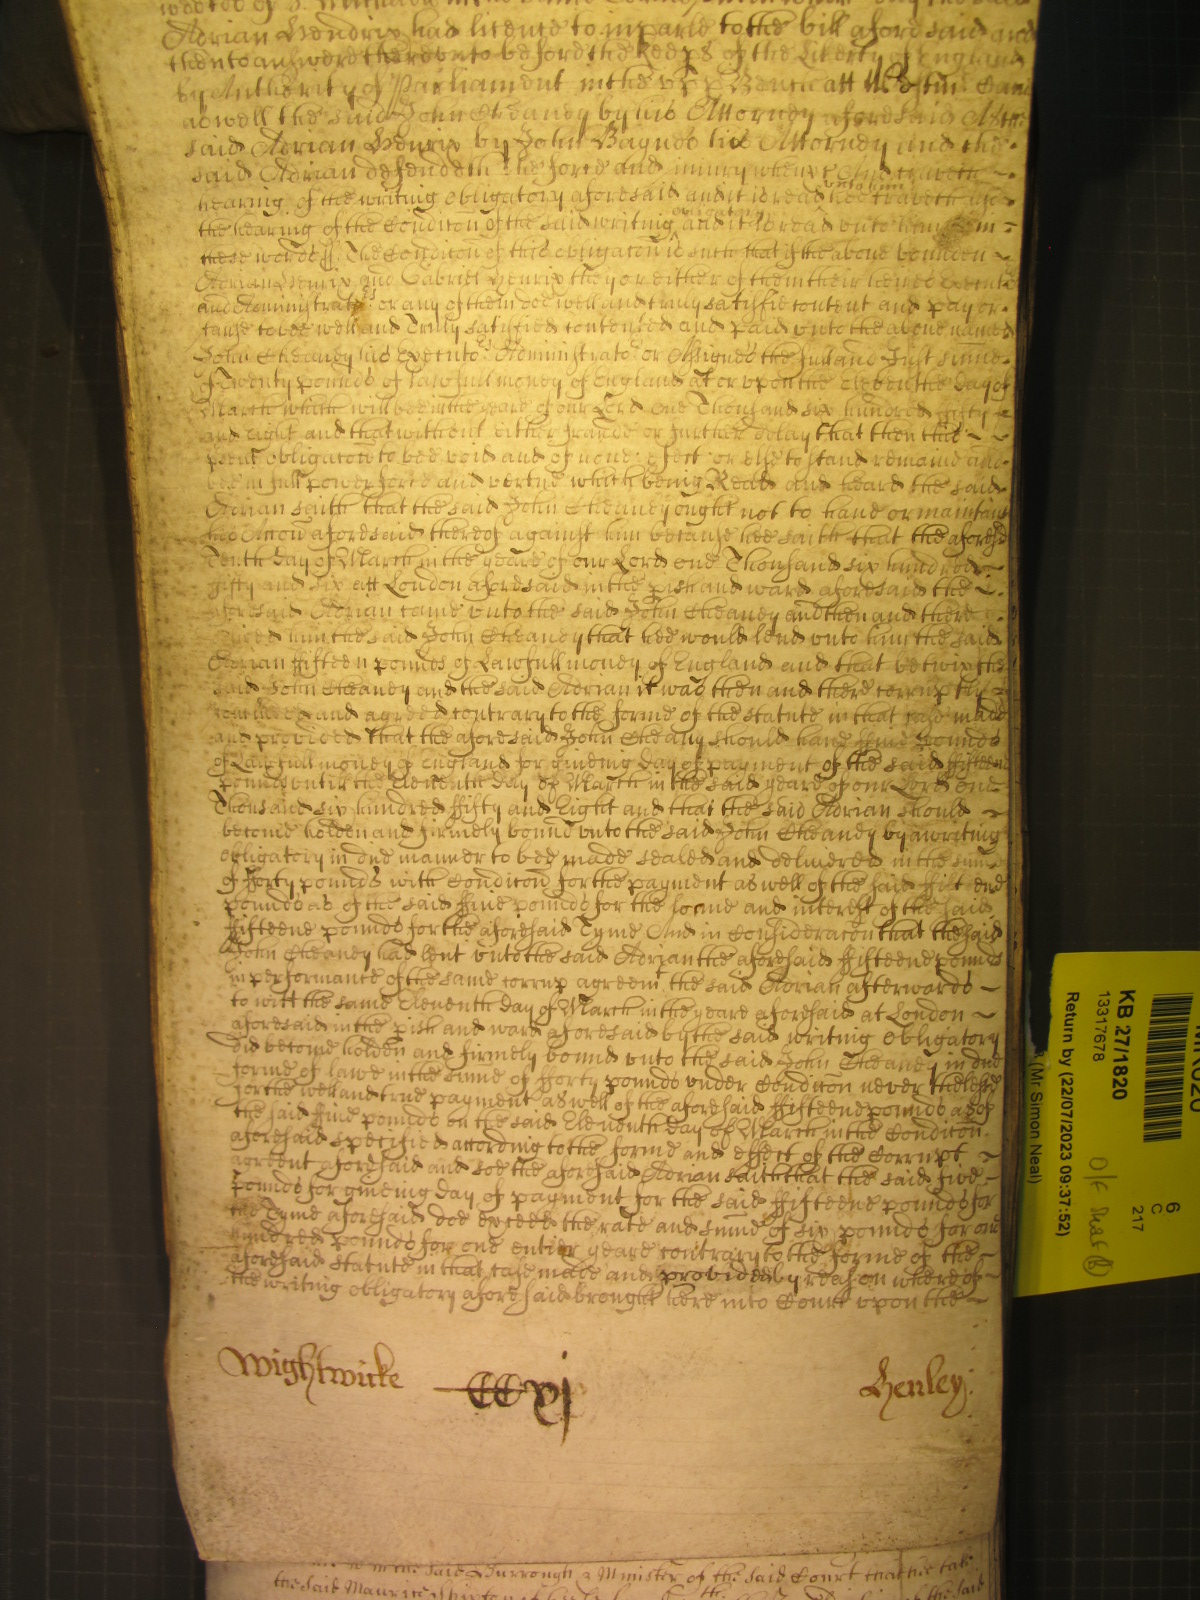 Adrian Hendrix had licence to imparle to the bill aforesaid and
then to answere thereunto before the Keeps of the Liberty of England
by Authority of Parliament in the upp Bench att Westm
aswell the said John Cheaney by his Attorney aforesaid as the
said Adrian Henrix by John Bagnes his Attorney and the
said Adrian defendeth the force and iniury when &c And craveth
hearing of the writing obligatory aforesaid and it is read unto him hee craveth also
the hearing of the Condicon of the said writing obligatory and it is read unto him in
these words ss The Condicon of this obligacon is such that if the above bounden
Adrian Henrix and Gabriel Henrix they or either of them their heires Executors
and Administrators or any of them doe well and truly satisfie content and pay or
cause to bee well and Truly satisfied contented and paid unto the above named
John Cheaney his Executors Administrators or Assignes the full and Just summe
of Twenty pounds of lawfull money of England at or upon the Eleventh day of
March which will bee in the yeare of our Lord One Thousand six hundred fifty
and eight and that without either fraude or further delay that then this
psent obligacon to bee void and of none effect or else to stand remaine and
bee in full power force and vertue which being Read and heard the said
Adrian saith that the said John Cheaney ought not to have or maintaine
his Accon aforesaid thereof against him because hee saith that the aforesd
Tenth day of March in the yeare of our Lord one Thousand six hundred
fifty and six att London aforesaid in the pish and ward aforesaid the
aforesaid Adrian came unto the said John Cheaney and then and there
him the said John Cheaney that hee would lend unto him the said
Adrian fifteen pounds of Lawfull money of England and that betwixt the
said John Cheaney and the said Adrian it was then and there corruptly
concluded and agreed contrary to the forme of the statute in that case made
and provided that the aforesaid John Cheany should have ffive pounds
of Lawfull money of England for giveing day of payment of the said fifteene
pounds untill the Eleventh day of March in the said yeare of our Lord one
Thousand six hundred ffifty and Eight and that the said Adrian should
become holden and firmely bound unto the said John Cheaney by a writing
obligatory in due manner to bee made sealed and delivered in the sume
of fforty pounds with Condicon for the payment as well of the said ffifteene
pounds as of the said ffive pounds for the loane and interest of the said
ffifteene pounds for the aforesaid Tyme And in Consideracon that the said
John Cheaney had lent unto the said Adrian the aforesaid ffifteene pounds
in performance of the same corrup agreemt the said Adrian afterwards
to witt the same Eleventh day of March in the yeare aforesaid at London
aforesaid in the pish and ward aforesaid by the said writing obligatory
did become holden and firmely bound unto the said John Cheaney in due
forme of lawe in the sume of fforty pounds under Condicon never thelesse
for the well and true payment as well of the aforesaid ffifteene pounds as of
the said ffive pounds on the said Eleventh day of March in the Condicon
aforesaid specified according to the forme and effect of the Corrupt
agreemt aforesaid and soe the aforesaid Adrian saith that the said five
pounds for giveing day of payment for the said ffifteene pounds for
the Tyme aforesaid doe exceed the rate and sume of six pounds for one
hundred pounds for one entier yeare contrary to the forme of the
aforesaid statute in that case made and provided by reason whereof
the writing obligatory aforesaid brought here into Court upon the
Wightwicke CCxj Henley
said Burrough a Minister of the said Court that he take
the said Maurice
KB 27/1820
13317678
Return by (22/07/2023 09:37:52)
(Mr Simon Neal)
6
C
217